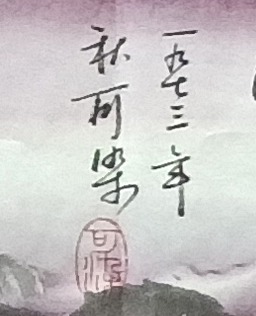 一九七三年
秋可染
可染